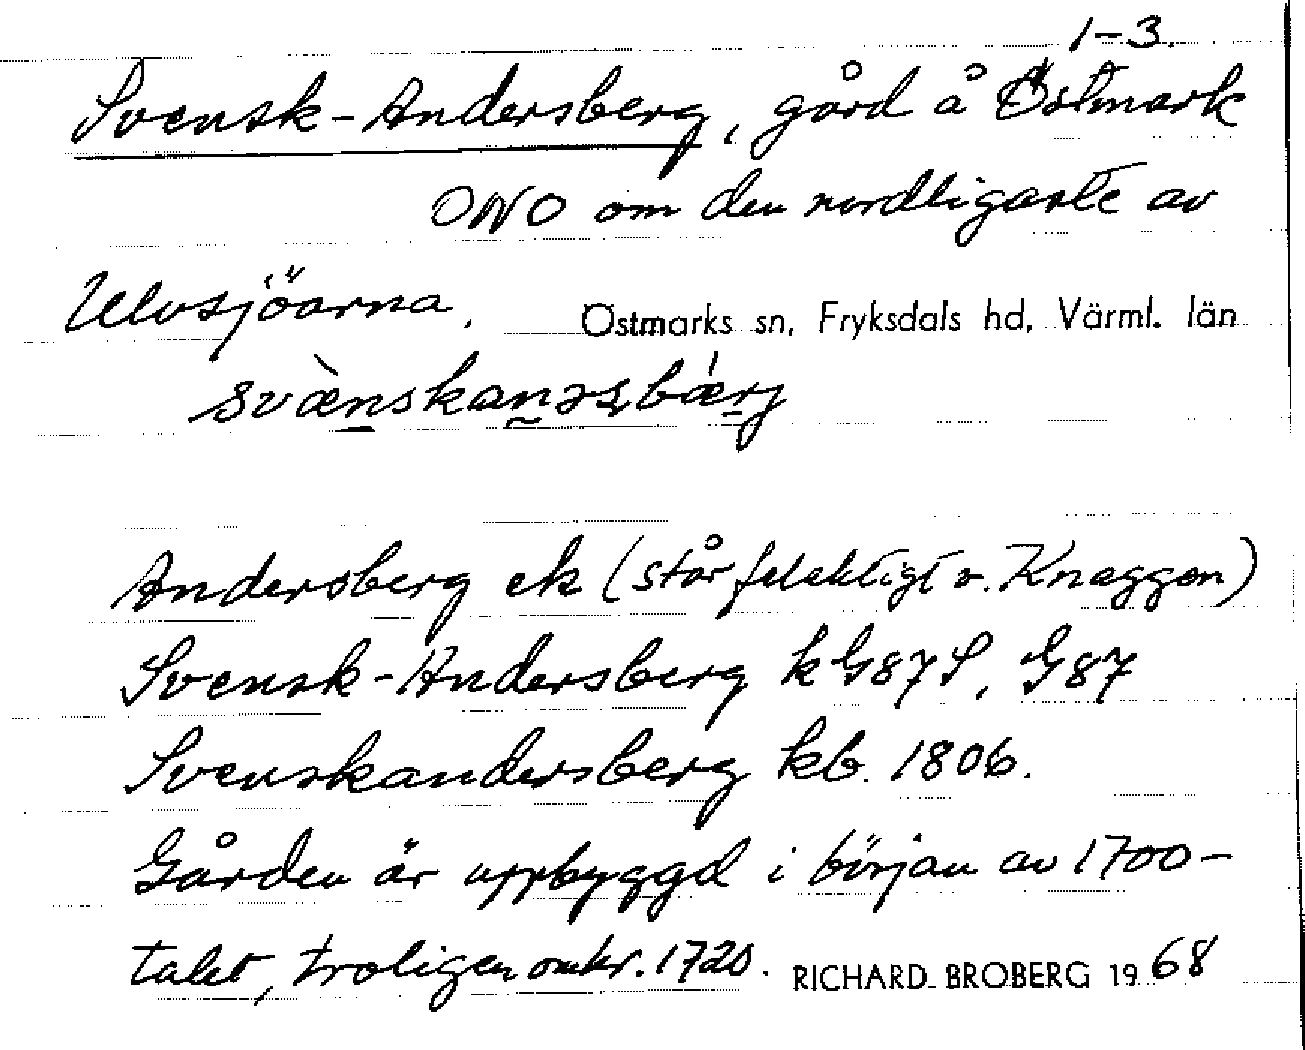 1-3.
Svensk-Andersberg, gård å Östmark
ONO om den nordligaste av
Ulvsjöarna. Östmarks sn, Fryksdals hd, Värml. län
svènskanəsbǽrj
Andersberg ek (står felaktigt v. Knaggen)
Svensk-Andersberg k G87S, G87
Svenskandersberg kb. 1806.
Gården är uppbyggd i början av 1700-
talet, troligen omkr. 1720. RICHARD BROBERG 1968